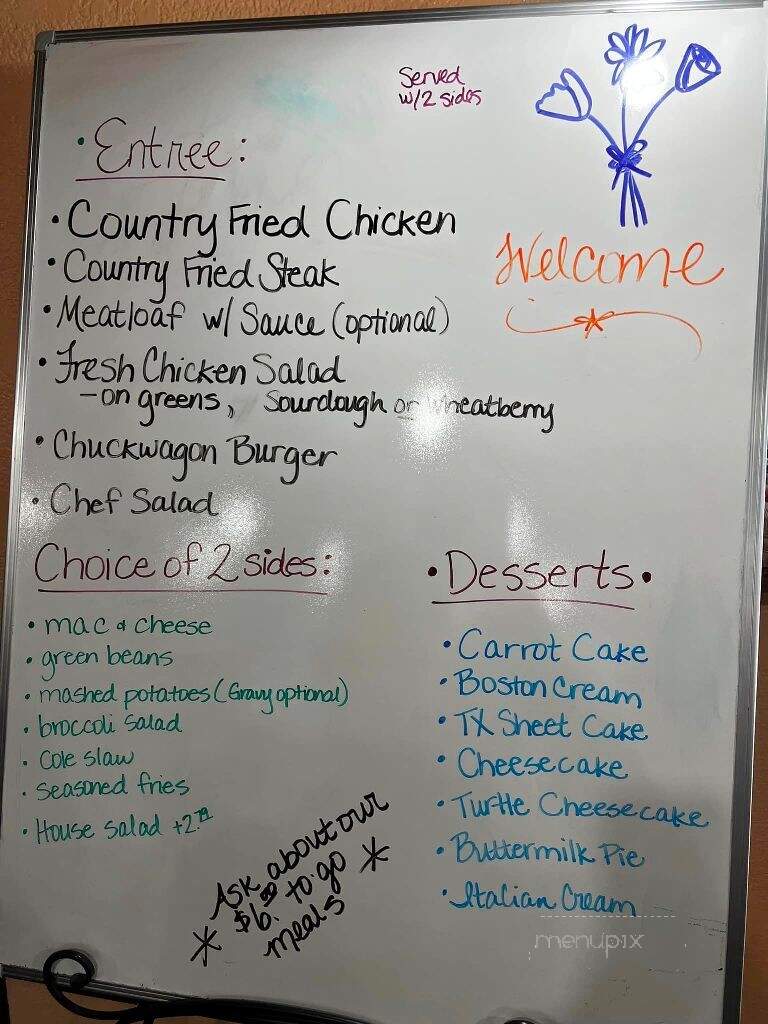 Served
w/2 sides
• Entree:
• Country Fried Chicken
• Country Fried Steak
• Meatloaf w/ Sauce (optional)
• Fresh Chicken Salad
- on greens, Sourdough or wheatberry
• Chuckwagon Burger
• Chef Salad
Welcome
Choice of 2 sides:
• mac & cheese
• green beans
• mashed potatoes (Gravy optional)
• broccoli salad
• Cole slaw
• Seasoned fries
• House salad +2.99
• Desserts •
• Carrot Cake
• Boston Cream
• TX Sheet Cake
• Cheesecake
• Turtle Cheesecake
• Buttermilk Pie
• Italian Cream
Ask about our
$6.00 to-go
meals
menupix